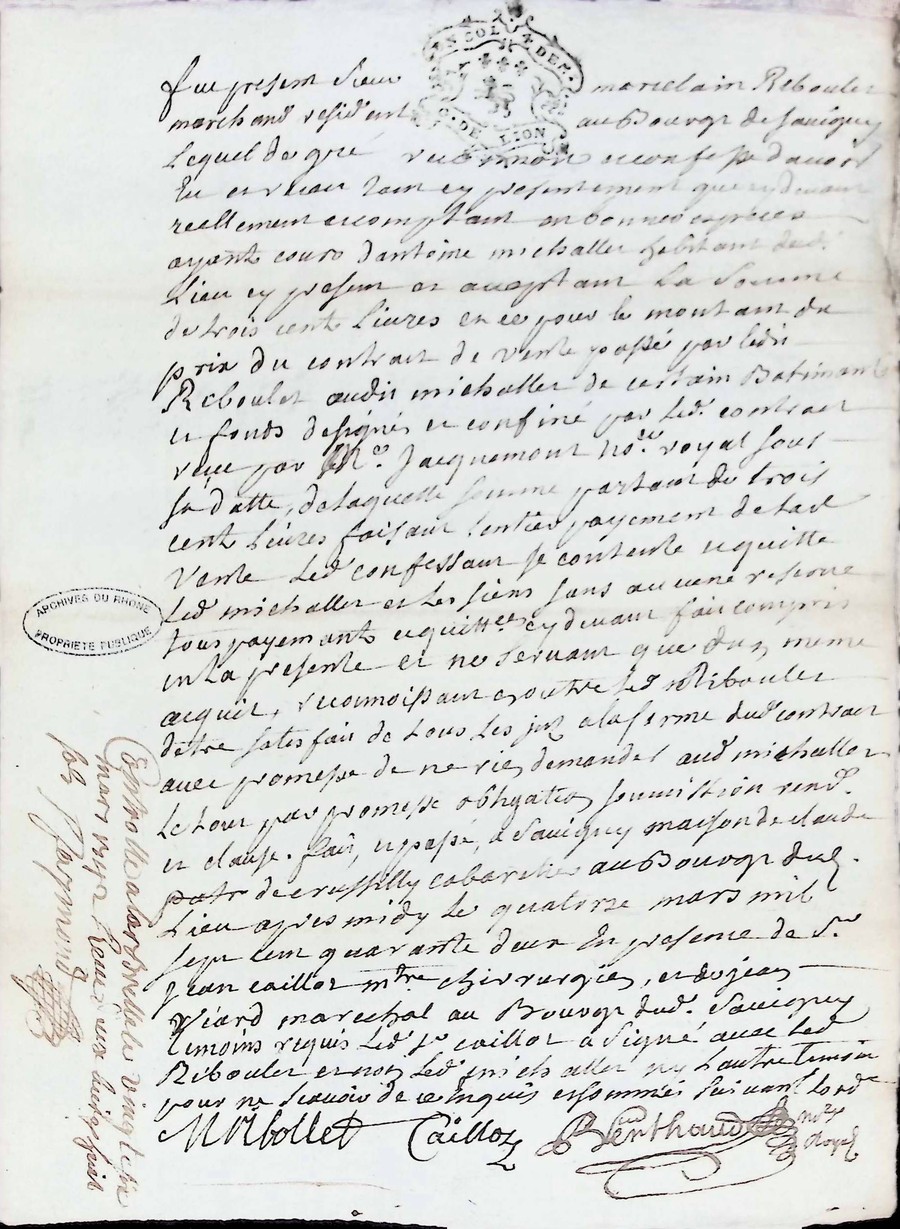 COL DE
G. DE LION
Fut present Sieur marclain Reboulet
marchand resident au Bourg de Savigny
Lequel de gré reconnoit et confesse d'avoir
Eu et receu tant cy presentement que cy devant
reellement et comptant en bonnes espèces
ayant cours d'antoine michallet habitant dud.
Lieu cy present et aceptant La Somme
de trois cent Livres et ce pour le montant du
prix du contract de vente passé par ledit
Reboulet audit michallet de certain Batimant
et fonds designés et confiné par led. contract
receu par Me. Jacquemont nore. royal sous
sa datte, de laquelle somme partant de trois
cent Livres faisant l'entier payement de lad
Vente Led confessant se contente et quitte
Led michallet et les siens sans aucune reserve
tous payemant et quittce cy devant fait compris
en La presente et ne servant que d'un meme
acquit, reconnoissant en outre Led Reboulet
d'etre satisfait de tous les a la forme dud contract
avec promesse de ne rien demander aud michallet
Le tout par promesse obligation soumission rend.
et clause. fait, et passé, a Savigny maison de claude
de crussilly cabaretier au Bourg dud.
Lieu apres midy le quatorze mars mil
sept cent quarante deux En presence de Sr
Jean caillot mtre chirurgien, et de jean
Viard marechal au Bourg dud. Savigny
temoins requis Led Sr caillot a Signé avec Led
Reboulet et non Led michallet ny L'autre temoin
pour ne Scavoir de ce Enquis et sommés Suivant L'ord
MRibollet Caillot Berthaud nore Royal
ARCHIVES DU RHONE
PROPRIETE PUBLIQUE
Controllé a larbresle le vingt
mars 1742 Receu deux livres huit
sols